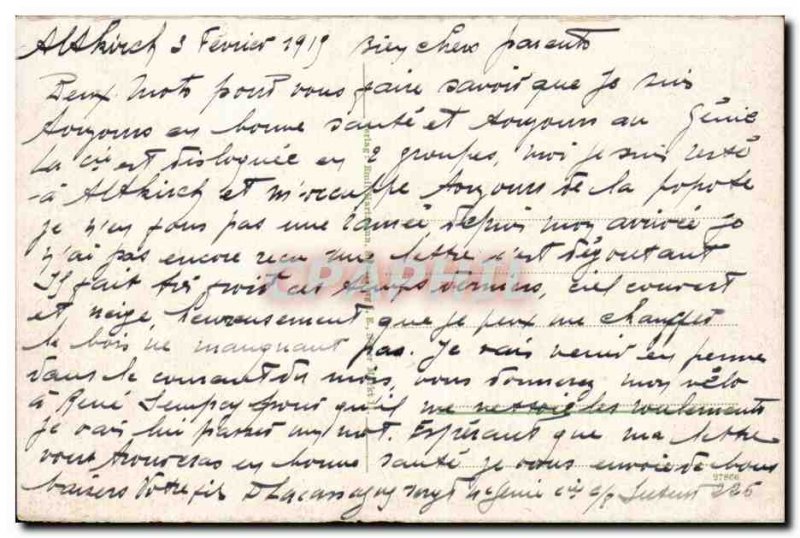 Altkirch 3 Février 1919 Bien chers parents
Deux mots pour vous faire savoir que je suis
toujours en bonne santé et toujours au Génie
La Cie est disloquée en 2 groupes, moi je suis resté
à Altkirch et m'occuppe toujours de la popote
je n'en fous pas une ramée, depuis mon arrivée je
n'ai pas encore recu une lettre c'est dégoutant
Il fait tré froid ces temps derniers, ciel couvert
et neige, heureusement que je peux me chauffer
le bois ne manquant pas. Je vais venir en perme
dans le courant du mois, vous donnerez mon vélo
à René pour qu'il me nettoie les roulements
je vais lui passer un mot. Espérant que ma lettre
vous trouveras en bonne santé je vous envoie de bons
baisers Votre fils Génie Cie Secteur 226
27866
CPAPHIL